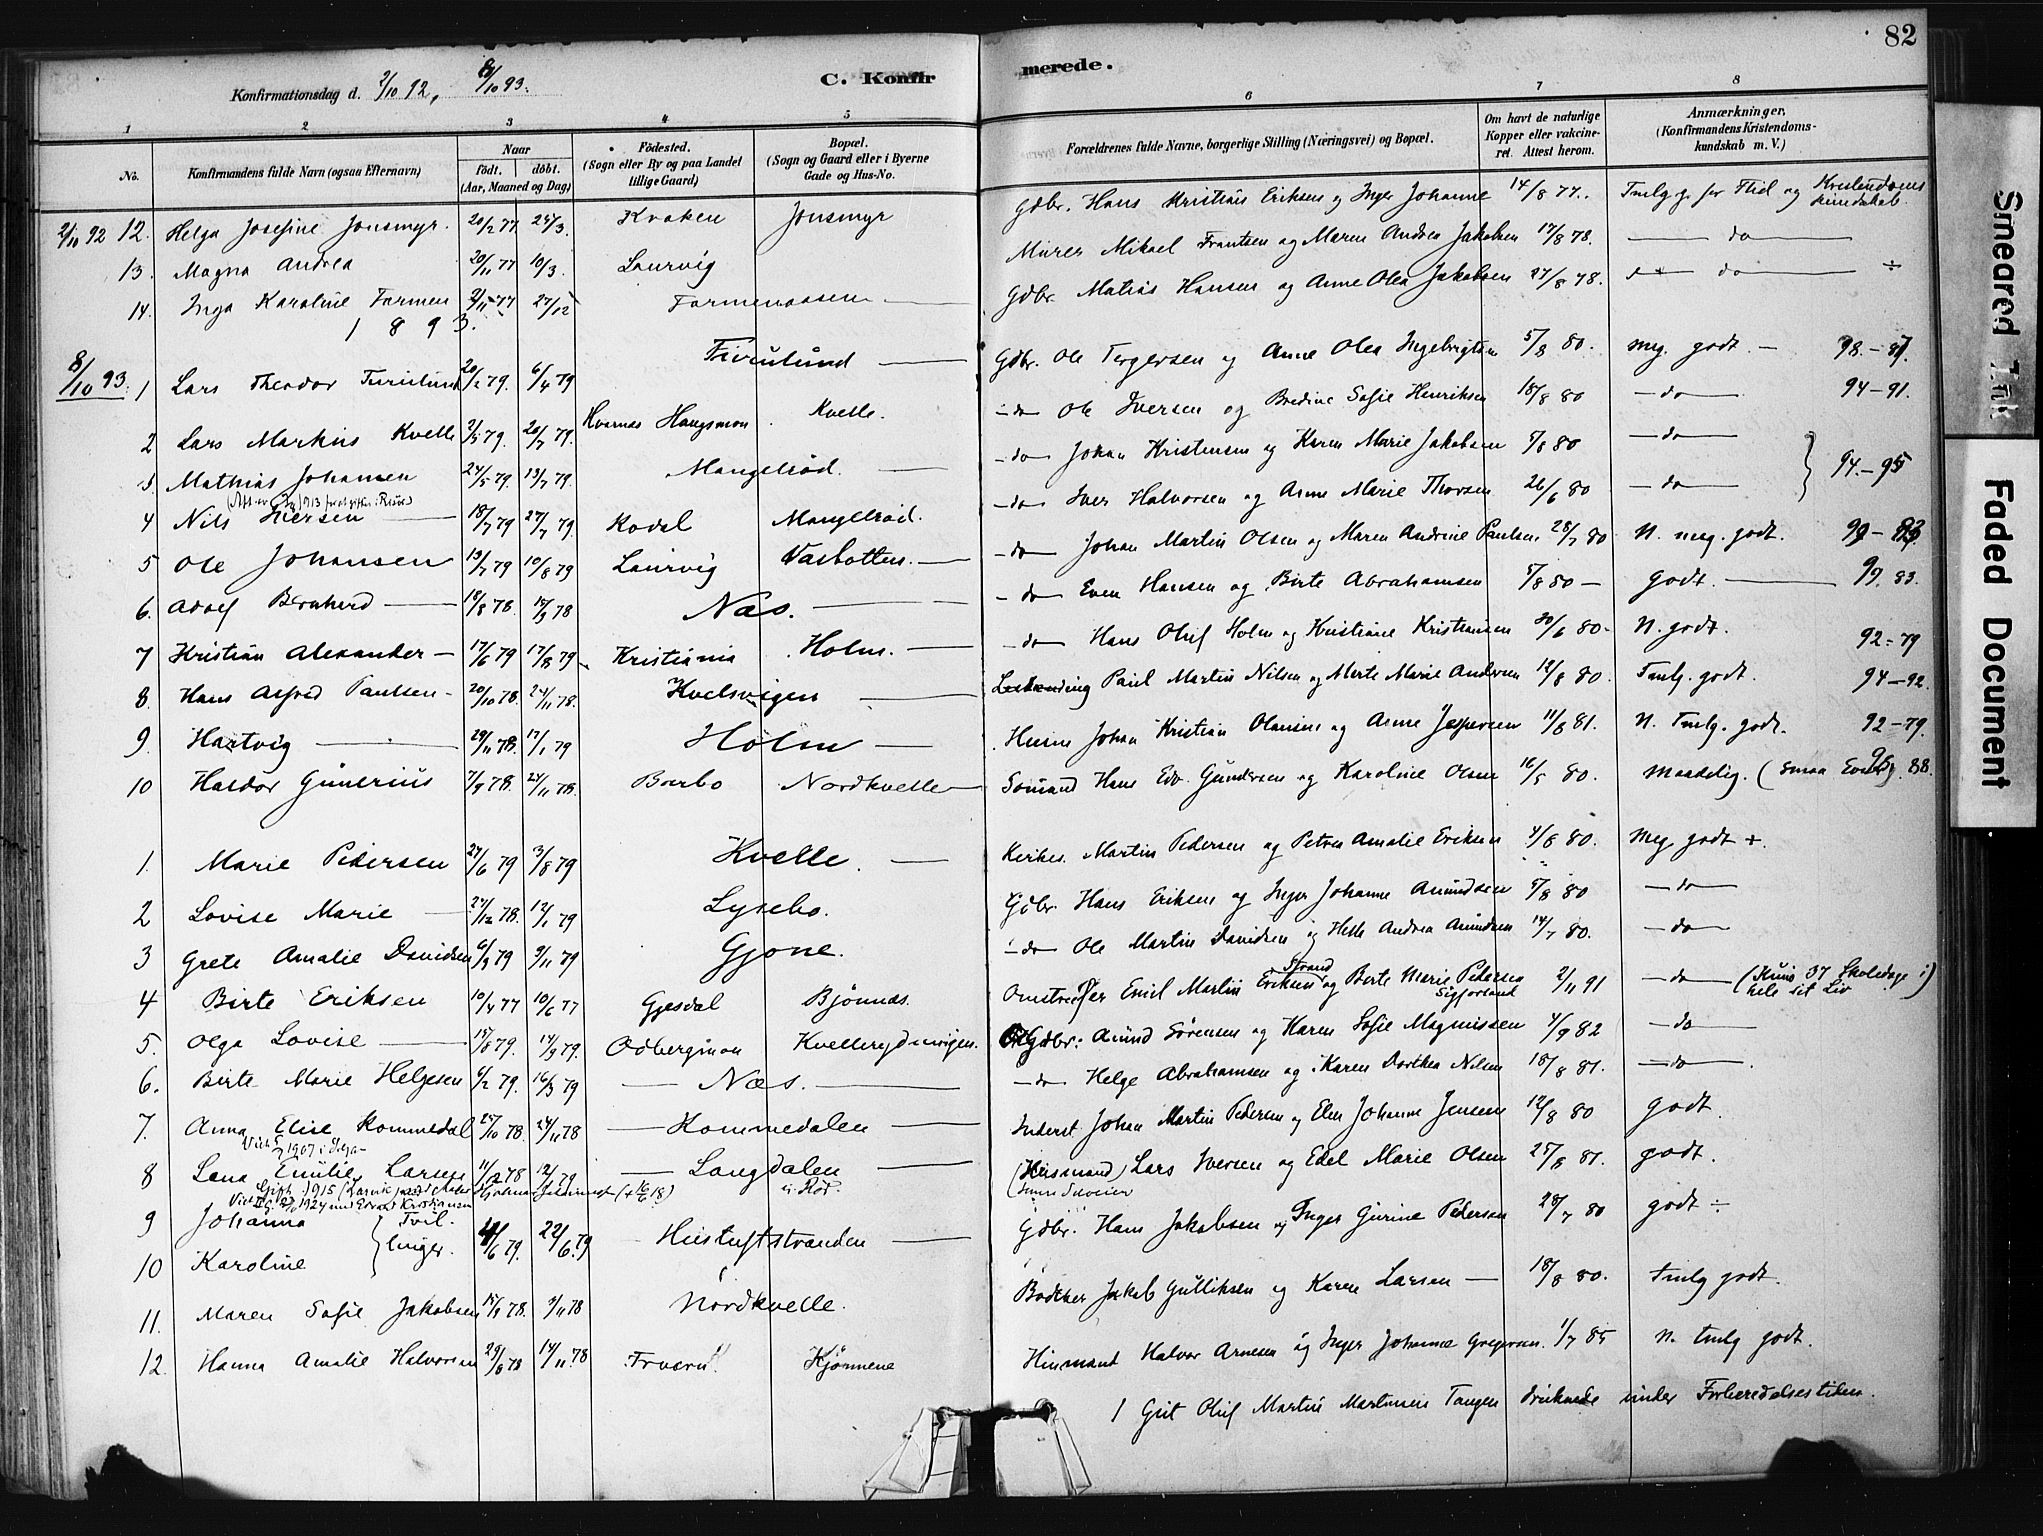 82
Konfirmationsdag d. 2/10 92, 8/10 93.
C. Konfirmerede.
1 2 3 4 5 6 7 8
No.
Konfirmandens fulde Navn (ogsaa Efternavn)
Naar
födt. döbt.
(Aar, Maaned og Dag)
Födested.
(Sogn eller By og paa Landet
tillige Gaard)
Bopæl.
(Sogn og Gaard eller i Byerne
Gade og Hus-No.
Forældrenes fulde Navne, borgerlige Stilling (Næringsvei) og Bopæl.
Om havt de naturlige
Kopper eller vakcine-
ret. Attest herom.
Anmærkninger,
(Konfirmandens Kristendoms-
kundskab m. V.)
12. Helga Josefine Jonsmyr. 20/2 77 Kvaken Jonsmyr Gdbr. Hans Kristian Eriksen og Inger Johanne 14/8 77. Tmlg g. for Flid og Kristendoms kundskab.
13. Magna Andrea 20/11 77 10/3. Laurvig Murer Mikael Frantsen og Maren Andrea Jakobsen 17/8 78. — do —
14. Inga Karoline Farmen 27/12 Farmenaasen — Gdbr. Matias Hansen og Anne Olea Jakobsen 27/8 78. — do — ÷
1893.
8/10 93. 1 Lars Theodor Furulund 20/2 79. 6/4 79 Furulund — Gdbr. Ole Tergersen og Anne Olea Ingebrigtsen 5/8 80. Meg. godt — 98 - 87.
2 Lars Markus Kvelle 2/5 79. 20/7 79. Kvarnes Haugsmon Kvelle. — do Ole Iversen og Bredine Sofie Henriksen 18/8 80 — do — 94 - 91.
3. Mathias Johansen 24/5 79. 13/7 79. Mangelröd. — — do Johan Kristensen og Karen Marie Jakobsen 5/8 80 — do — 94 - 95
4 Nils Iversen — 18/7 79 27/7 79. Kodal Mangelröd. — do Iver Halvorsen og Anne Marie Thorsen 26/6 80 — do —
5 Ole Johansen 13/7 79 10/8 79 Laurvig Vasbotten. — — do Johan Martin Olsen og Maren Andrine Paulsen. 28/7 80 N. meg. godt.
6. Adolf Bernherd — 18/8 78. Næs. — — do Even Hansen og Birte Abrahamsen 5/8 80 — godt. — 99. 83.
7 Kristian Alexander — 17/6 79 17/8 79 Kristiania Holm. — — do Hans Oluf Holm og Kristiane Kristiansen 30/6 80 - N. godt. 92 - 79
8. Hans Alfred Paulsen - 20/10 78. 24/11 78. Kvelsvigen — Paul Martin Nilsen og Merte Marie Andersen 12/8 80. Tmlg. godt. 94 - 92.
9. Hartvig — 29/11 78. 17/1 79 Holm — Johan Kristian Olausen og Anne Jespersen 11/8 81. N. Tmlg. godt. 92 - 79.
10 Haldor Gunerius 7/9 78. 24/11 78. Borbo Nordkvelle — Sömand Hans Edv. Gundersen og Karoline Olsen 16/5 80. Maadelig. (smaa Evner). 88.
1. Marie Pedersen 27/6 79 3/8 79 Kvelle. — Kirkes. Martin Pedersen og Petra Amalie Eriksen 4/8 80. Meg. godt +.
2 Lovise Marie — 27/12 78. 12/1 79 Lysebo. Gdbr. Hans Eriksen og Inger Johanne Amundsen 5/8 80 — do —
3 Grete Amalie Davidsen 6/9 79 9/11 79 Gjone. — do Ole Martin Davidsen og Helle Andrea Amundsen 14/7 80. — do —
4 Birte Eriksen 10/4 77 10/6 77 Gjesdal Bjönnæs. Omstreifer Emil Martin Eriksen Strand og Birte Marie Pedersen Sigforsland 2/11 91 — do (Kuns 37 Skoledage i hele sit Liv)
5. Olga Lovise — 15/8 79. 14/9 79. Odbergmoa Kvelleryd Gdbr. Amund Sörensen og Karen Sofie Magnussen 4/9 82 — do —
6. Birte Marie Helgesen 6/2 79. 16/3 79 — Næs. — — do Helge Abrahamsen og Karen Dorthea Nilsen 18/8 81. — do —
7. Anna Elise Kommedal 25/10 78. 24/11 78 — Kommedalen — Inderst Johan Martin Pedersen og Elen Johanne Jensen 12/8 80 godt.
8 Lena Emilie Larsen 12/1 79. — Langdalen i Röd. — (Husmand) Lars Iversen og Edel Marie Olsen 25/8 81. godt.
9 Johanna } Tvil- 4/6 79. 22/6 79 — Hustuftstranden — Gdbr. Hans Jakobsen og Inger Gurine Pedersen 28/7 80 godt ÷
10 Karoline } linger.
11. Maren Sofie Jakobsen 15/9 78. 3/11 78 Nordkvelle. Bödker Jakob Gulliksen og Karen Larsen — 18/8 80. Tmlg godt.
12. Hanna Amalie Halvorsen 29/8 78 17/11 78 Kjönnene Husmand Halvor Arnesen og Inger Johanne Gregersen. 1/7 85 N. tmlg godt.
1 Gut Oluf Martin Martinsen Tangen druknede under Forberedelsestiden.
Smeared Ink
Faded Document